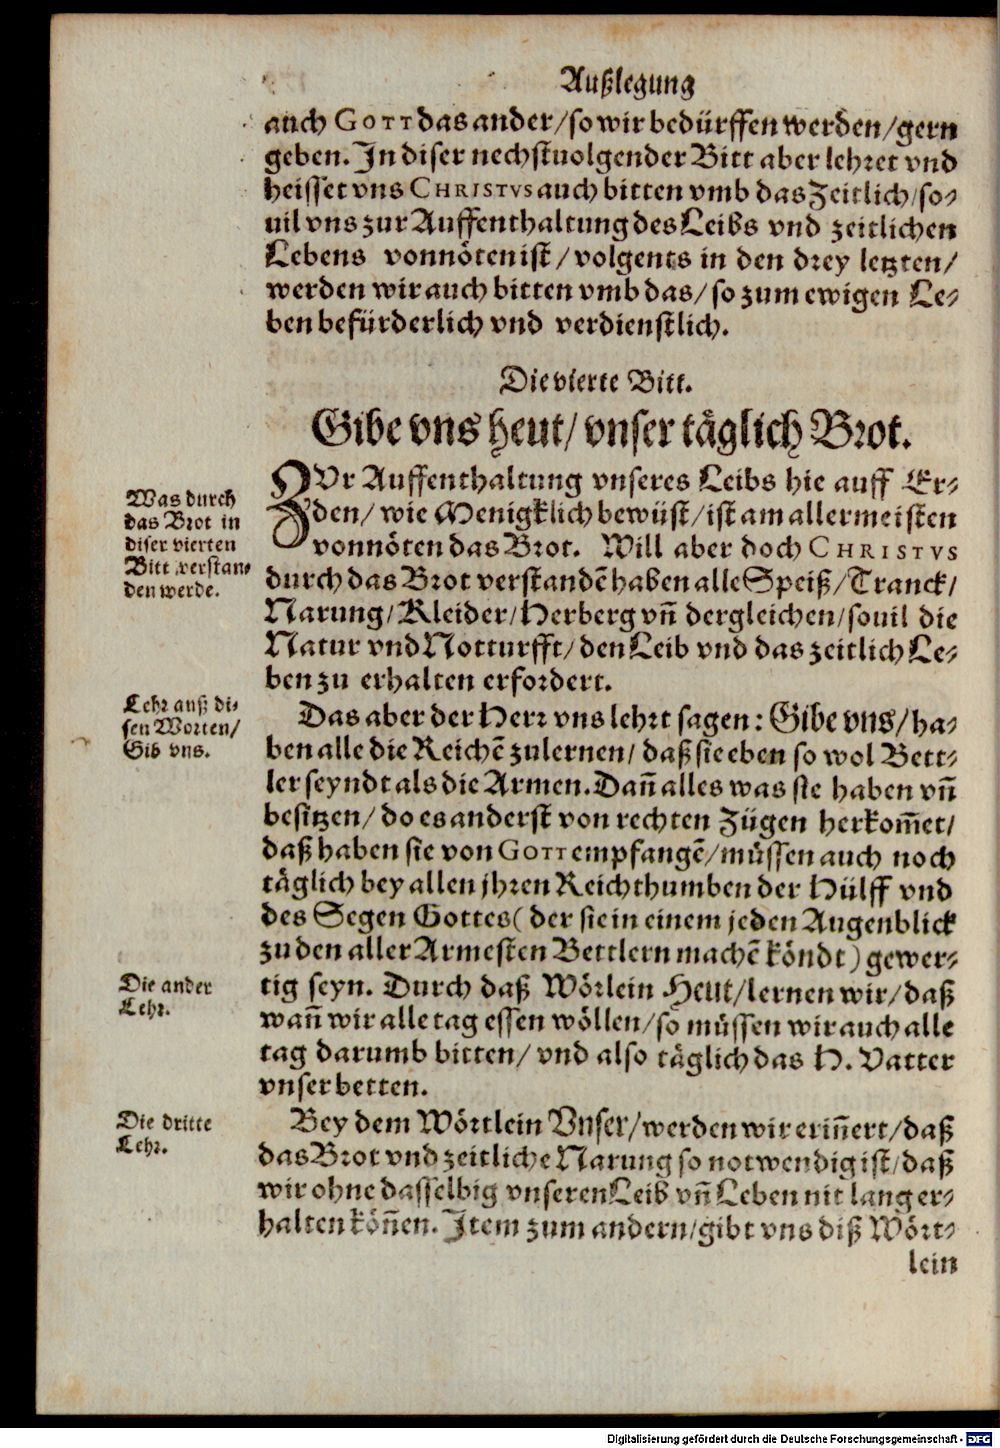 Außlegung
auch GOTT das ander/ so wir bedürffen werden/ gern
geben. In diser nechstuolgender Bitt aber lehret vnd
heisset vns CHRISTVS auch bitten vmb das Zeitlich/ so-
uil vns zur Auffenthaltung des Leibs vnd zeitlichen
Lebens vonnöten ist/ volgents in den drey letzten/
werden wir auch bitten vmb das/ so zum ewigen Le-
ben befürderlich vnd verdienstlich.
Die vierte Bitt.
Gibe vns heut/ vnser täglich Brot.
Was durch
das Brot in
diser vierten
Bitt verstan-
den werde.
ZVr Auffenthaltung vnseres Leibs hie auff Er-
den/ wie Menigklich bewüst/ ist am allermeisten
vonnöten das Brot. Will aber doch CHRISTVS
durch das Brot verstandẽ haben alle Speiß/ Tranck/
Narung/ Kleider/ Herberg vñ dergleichen/ souil die
Natur vnd Notturfft/ den Leib vnd das zeitlich Le-
ben zu erhalten erfordert.
Lehr auß di-
sen Worten/
Gib vns.
Das aber der Herr vns lehrt sagen: Gibe vns/ ha-
ben alle die Reichẽ zulernen/ daß sie eben so wol Bett-
ler seyndt als die Armen. Dañ alles was sie haben vñ
besitzen/ do es anderst von rechten Zügen herkom̃et/
daß haben sie von GOTT empfangẽ/ müssen auch noch
täglich bey allen jhren Reichthumben der Hülff vnd
des Segen Gottes (der sie in einem jeden Augenblick
zu den aller Armesten Bettlern machẽ köndt) gewer-
Die ander
Lehr.
tig seyn. Durch daß Wörlein Heut/ lernen wir/ daß
wañ wir alle tag essen wöllen/ so müssen wir auch alle
tag darumb bitten/ vnd also täglich das H. Vatter
vnser betten.
Die dritte
Lehr.
Bey dem Wörtlein Vnser/ werden wir eriñert/ daß
das Brot vnd zeitliche Narung so notwendig ist/ daß
wir ohne dasselbig vnseren Leib vñ Leben nit lang er-
halten köñen. Item zum andern/ gibt vns diß Wört-
lein
Digitalisierung gefördert durch die Deutsche Forschungsgemeinschaft - DFG